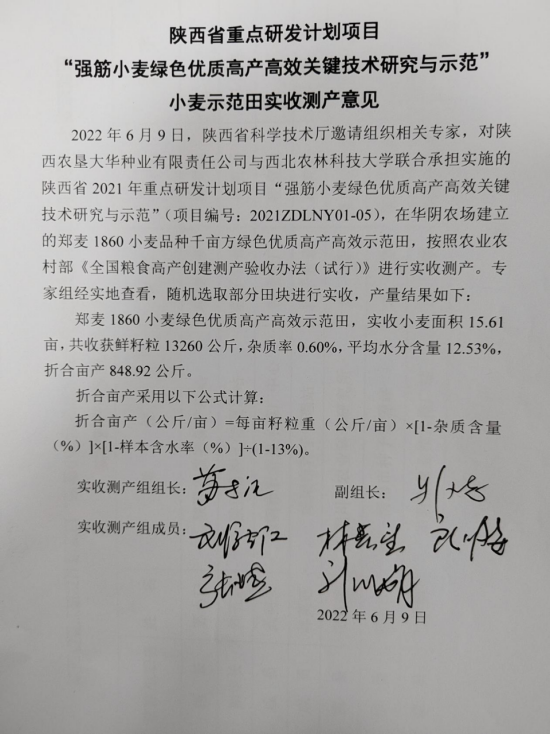 陕西省重点研发计划项目
“强筋小麦绿色优质高产高效关键技术研究与示范”
小麦示范田实收测产意见
2022 年 6 月 9 日，陕西省科学技术厅邀请组织相关专家，对陕
西农垦大华种业有限责任公司与西北农林科技大学联合承担实施的
陕西省 2021 年重点研发计划项目“强筋小麦绿色优质高产高效关键
技术研究与示范”（项目编号：2021ZDLNY01-05），在华阴农场建立
的郑麦 1860 小麦品种千亩方绿色优质高产高效示范田，按照农业农
村部《全国粮食高产创建测产验收办法（试行）》进行实收测产。专
家组经实地查看，随机选取部分田块进行实收，产量结果如下：
郑麦 1860 小麦绿色优质高产高效示范田，实收小麦面积 15.61
亩，共收获鲜籽粒 13260 公斤，杂质率 0.60%，平均水分含量 12.53%，
折合亩产 848.92 公斤。
折合亩产采用以下公式计算：
折合亩产（公斤/亩）=每亩籽粒重（公斤/亩）×[1-杂质含量
（%）]×[1-样本含水率（%）]÷(1-13%)。
实收测产组组长： 副组长：
实收测产组成员：
2022 年 6 月 9 日